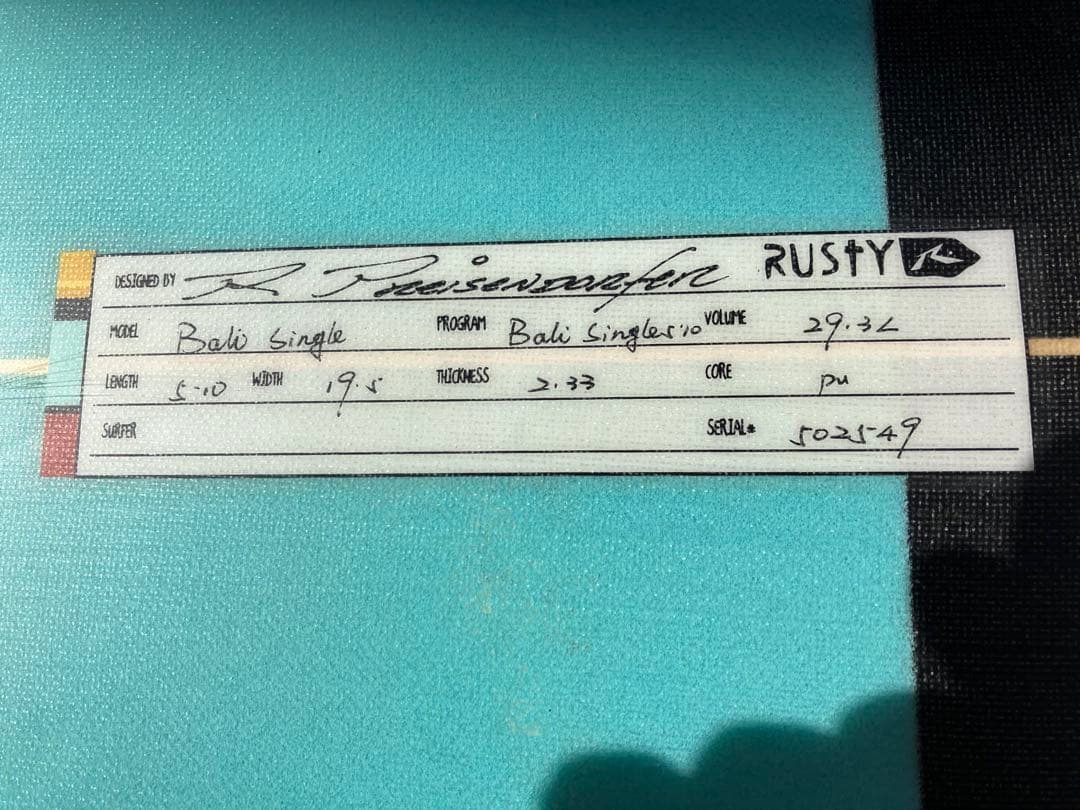 DESIGNED BY R Preisendorfer RUSTY R
MODEL Bali Single PROGRAM Bali Single5'10 VOLUME 29.3L
LENGTH 5-10 WIDTH 19.5 THICKNESS 2.33 CORE pu
SURFER SERIAL# 502549